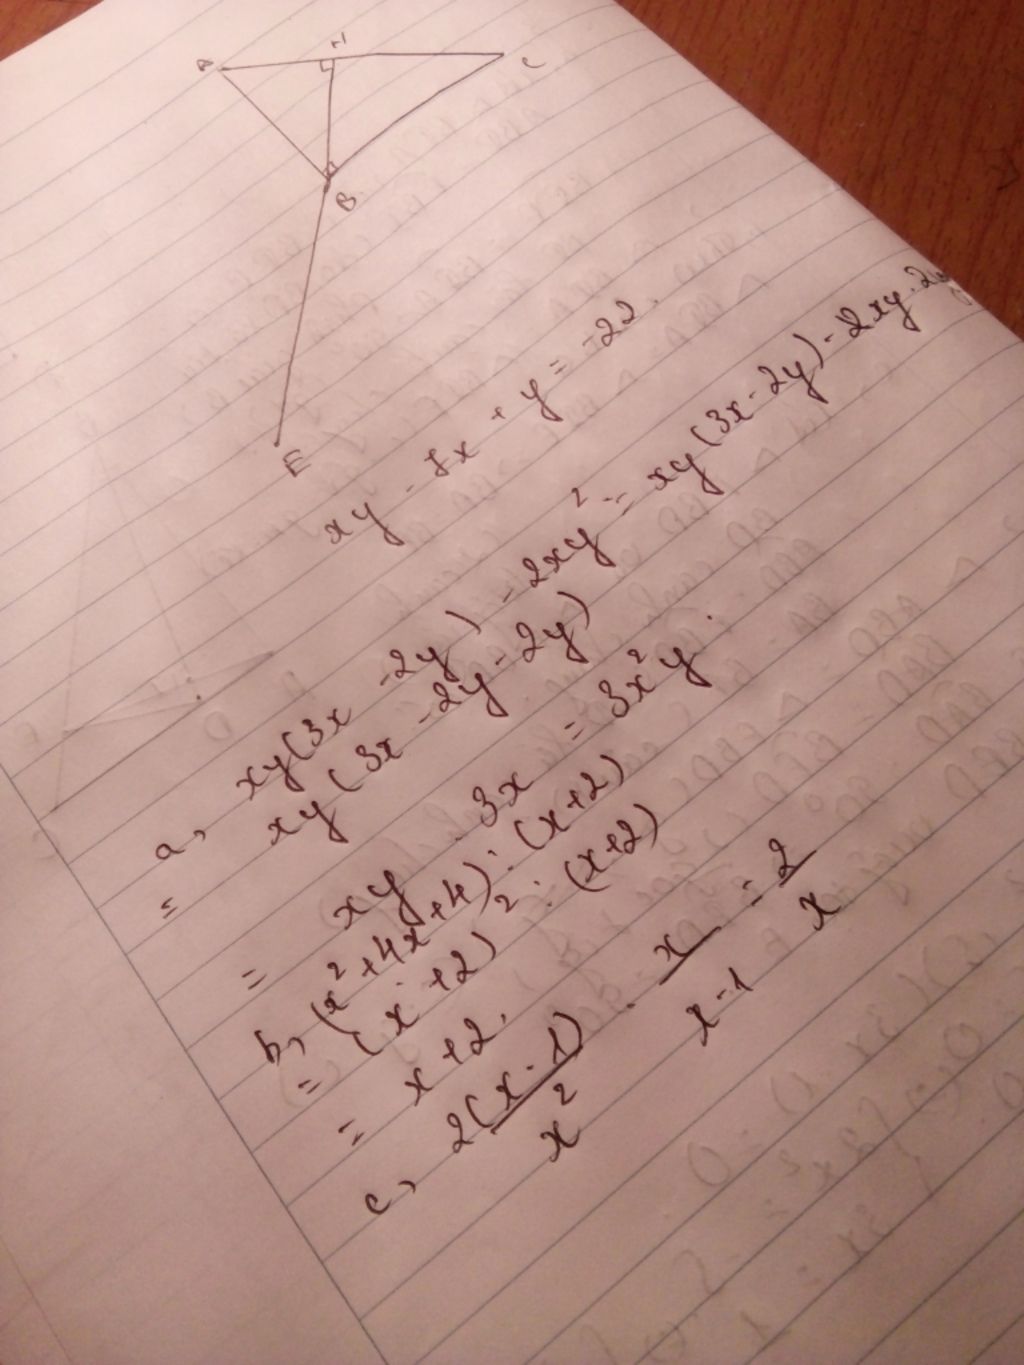 A H C
B
E
xy - 7x + y = -22.
a, xy(3x - 2y) - 2xy² = xy(3x - 2y) - 2xy.
= xy(3x - 2y - 2y)
= xy . 3x = 3x²y.
b, (x² + 4x + 4) : (x+2)
= (x + 2)² : (x+2)
= x + 2.
c, 2(x - 1)/x² . x/x-1 = 2/x